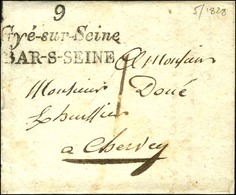 9
5/1828
Gyé-sur-Seine
BAR-S-SEINE
A Monsieur
Monsieur Doué
huissier
a Chervey